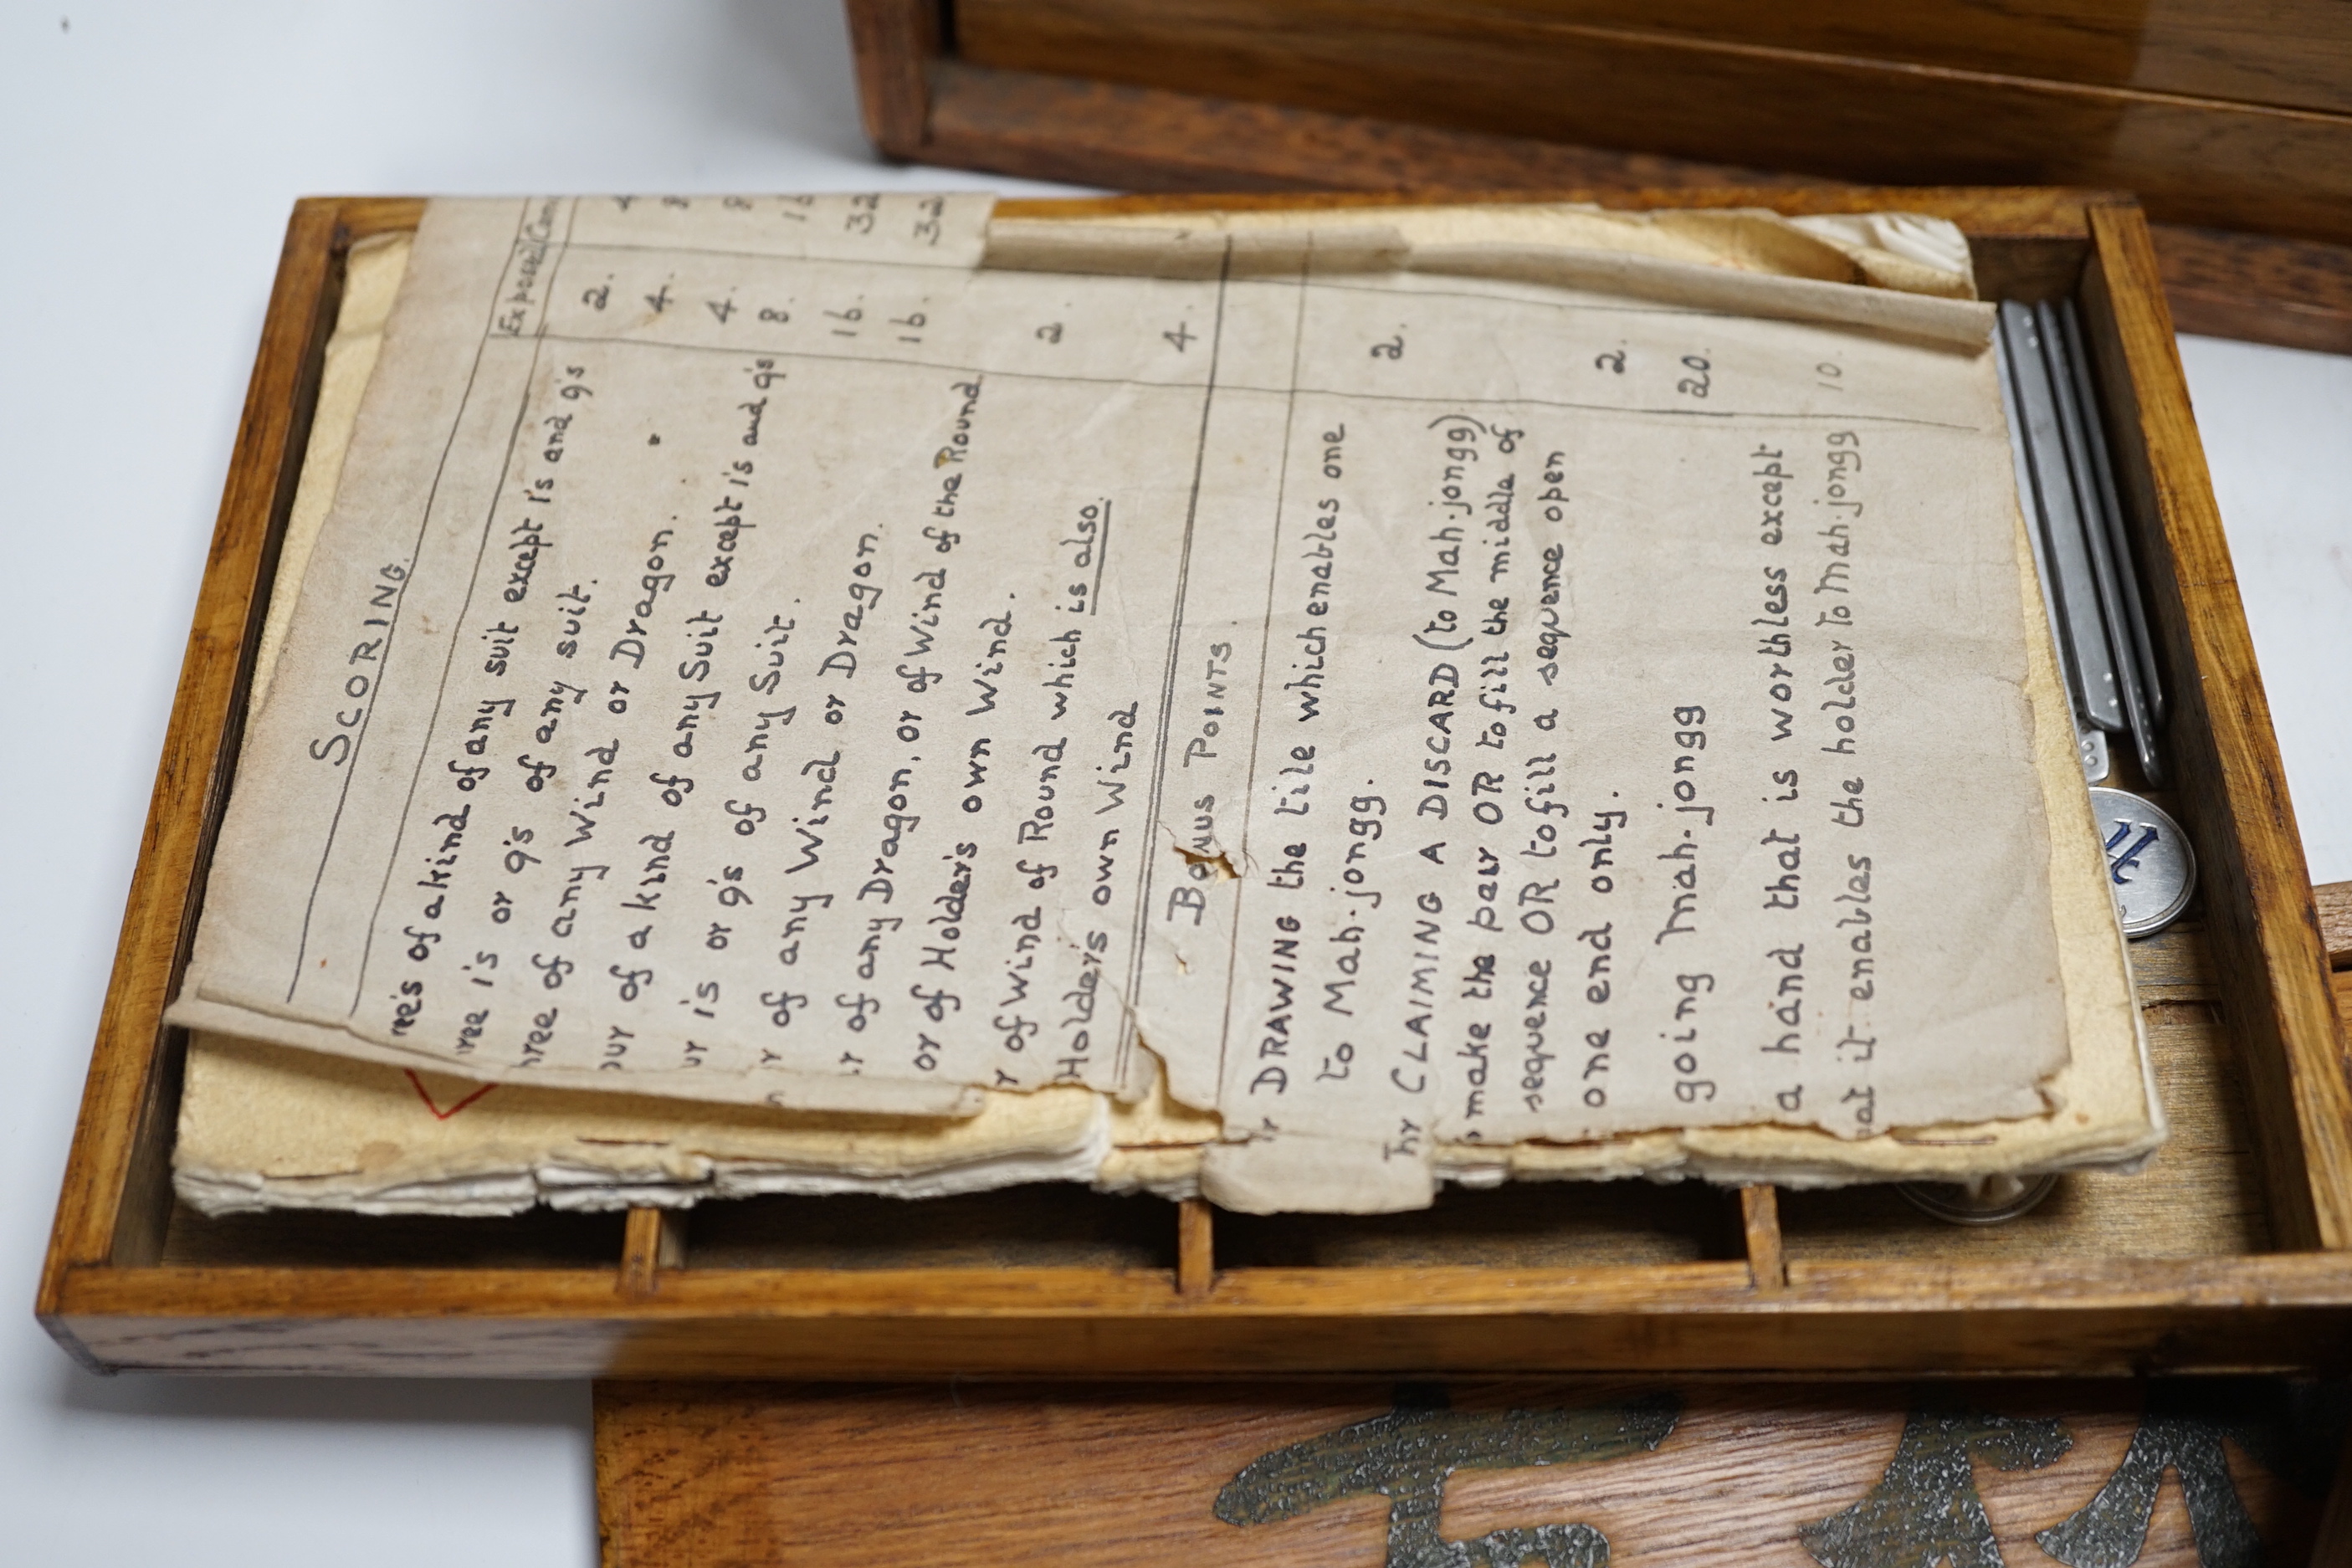 SCORING.
Exposed
ree's of a kind of any suit except 1's and 9's 2. 4
ree 1's or 9's of any suit. 4. 8
hree of any Wind or Dragon. 4. 8
our of a kind of any Suit except 1's and 9's 8. 16
ur 1's or 9's of any Suit. 16. 32
r of any Wind or Dragon. 16. 32
r of any Dragon, or of Wind of the Round
or of Holder's own Wind. 2.
r of Wind of Round which is also
Holder's own Wind 4.
BONUS POINTS
r DRAWING the tile which enables one
to Mah-jongg. 2.
CLAIMING A DISCARD (to Mah-jongg)
make the pair OR to fill the middle of
sequence OR to fill a sequence open
one end only. 2.
going Mah-jongg 20.
a hand that is worthless except
at it enables the holder to Mah-jongg 10.